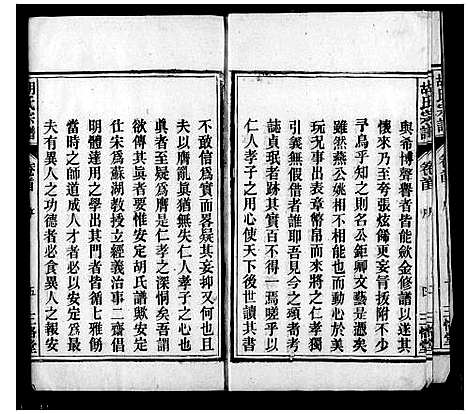 胡氏宗譜
卷首
序
四
三槐堂
與希博聲譽者皆能斂金修譜以求其
懷來乃至夸張炫飾更妄引貴顯附少
予烏乎知之則有名公鉅卿文士悉心
雖然燕公姚相不相能而卒動心於美
玩況事以表章幣帛而來將之仁孝
引其無徵借譽者誰耶吾見今之
誌貞珉者跡其實百不得一焉嗟乎以
仁人孝子之用心使天下後世其
不敢信爲實而畧疑其妄抑又甚矣
夫以膺亂眞猶無失仁人孝子之心也
眞者至疑爲膺是仁孝之深恫矣吾謂
欲傳其眞者要惟安定胡氏譜歟安定
仕宋爲蘇湖教授立經義治事二齋倡
明體達用之學出其門者皆循七雅飭
當時之師道成人才者必以安定爲最
夫有異人之功德者必食異人之報安
胡氏宗譜
卷首
序
五
三槐堂